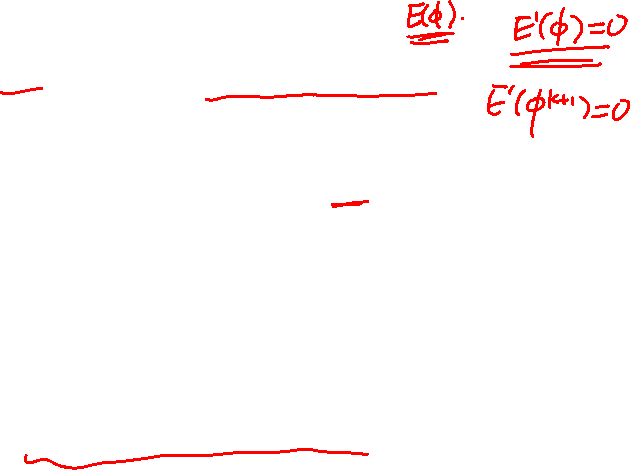 E(ϕ).
E'(ϕ)=0
E'(ϕ^{k+1})=0